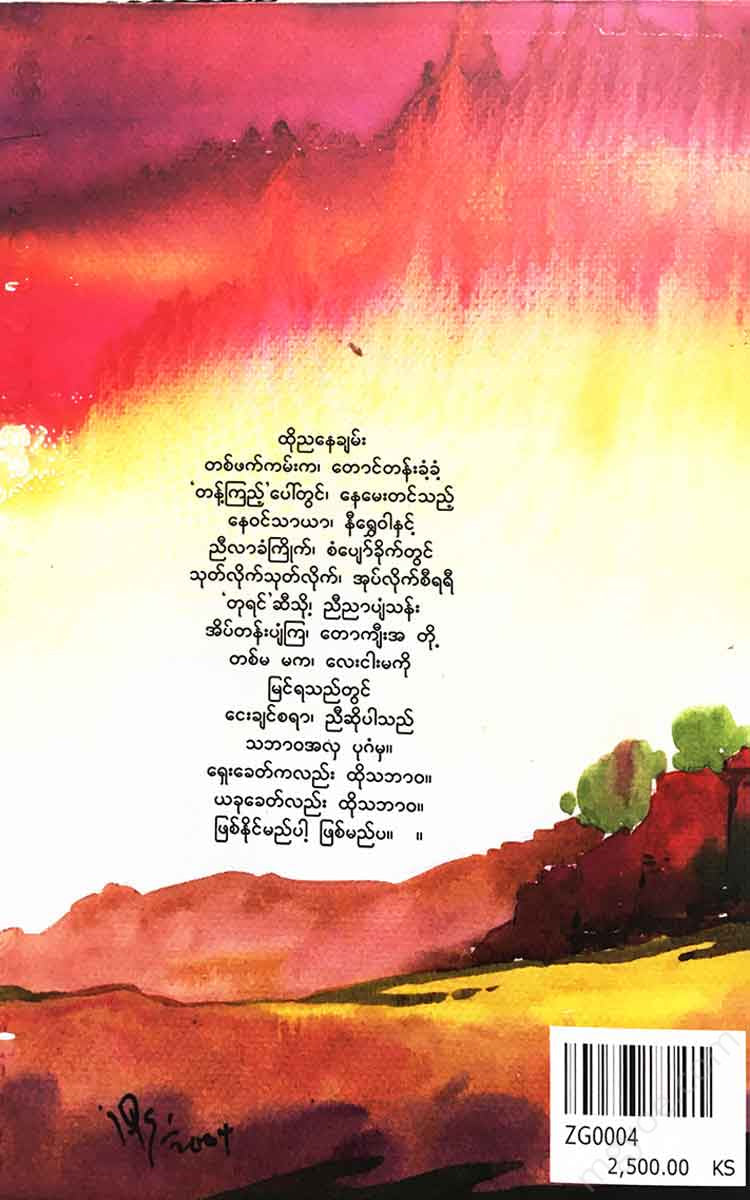 ထိုညနေချမ်း
တစ်ဖက်ကမ်းက၊ တောင်တန်းခံ့ခံ့
'တန့်ကြည့်'ပေါ်တွင်၊ နေမေးတင်သည့်
နေဝင်သာယာ၊ နီရွှေဝါနှင့်
ညီလာခံကြိုက်၊ စံပျော်ခိုက်တွင်
သုတ်လိုက်သုတ်လိုက်၊ အုပ်လိုက်စီရရီ
'တုရင်'ဆီသို့၊ ညီညာပျံသန်း
အိပ်တန်းပျံကြ၊ တောကျီးအ တို့
တစ်မ မက၊ လေးငါးမကို
မြင်ရသည်တွင်
ငေးချင်စရာ၊ ညီဆိုပါသည်
သဘာဝအလှ ပုဂံမှ။
ရှေးခေတ်ကလည်း ထိုသဘာဝ။
ယခုခေတ်လည်း ထိုသဘာဝ။
ဖြစ်နိုင်မည်ပါ့ ဖြစ်မည်ပ။ ။
ZG0004
2,500.00 KS